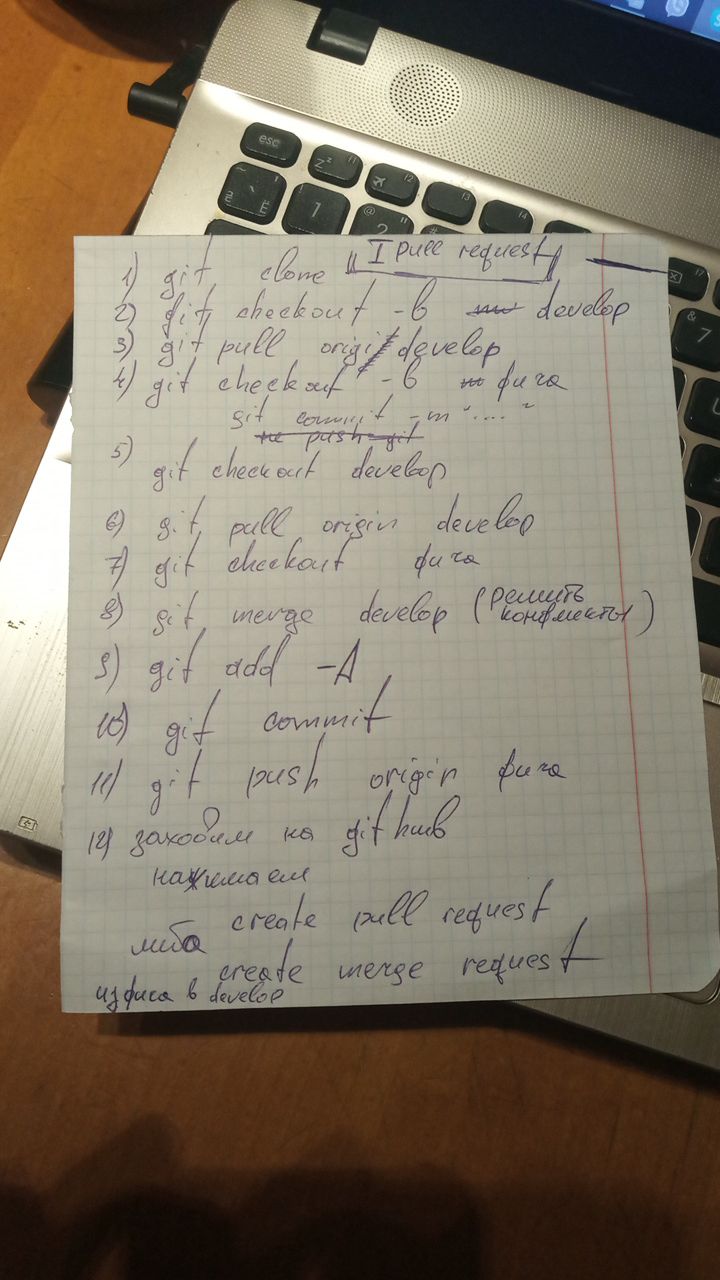 I pull request
1) git clone " "
2) git checkout -b develop
3) git pull origin develop
4) git checkout -b фича
git commit -m "...."
не push git
5)
git checkout develop
6) git pull origin develop
7) git checkout фича
8) git merge develop (решить конфликты)
9) git add -A
10) git commit
11) git push origin фича
12) заходим на git hub
нажимаем
create pull request
либо
create merge request
из фича в develop
esc
1
2
7